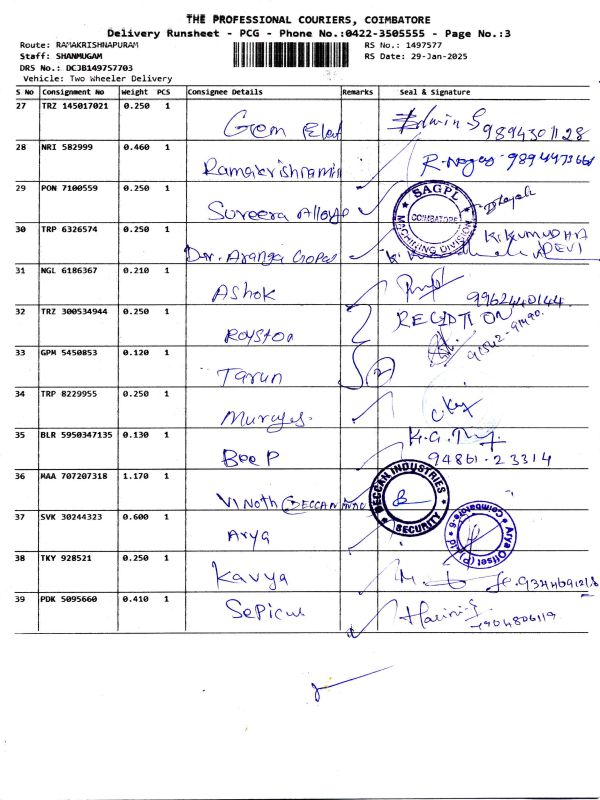 THE PROFESSIONAL COURIERS, COIMBATORE
Delivery Runsheet - PCG - Phone No.:0422-3505555 - Page No.:3
Route: RAMAKRISHNAPURAM
RS No.: 1497577
Staff: SHANMUGAM
RS Date: 29-Jan-2025
DRS No.: DCJB149757703
Vehicle: Two Wheeler Delivery
S No Consignment No Weight PCS Consignee Details Remarks Seal & Signature
27 TRZ 145017021 0.250 1 Gem Edwin S 9894301128
28 NRI 582999 0.460 1 R. 
29 PON 7100559 0.250 1 Sureera Alloys SAGPL COIMBATORE MACHINING DIVISION
30 TRP 6326574 0.250 1 Dr. Aranga Gopal K. KUMUDHA DEVI
31 NGL 6186367 0.210 1 Ashok 9962440144
32 TRZ 300534944 0.250 1 Royston
33 GPM 5450853 0.120 1 Tarun 2
34 TRP 8229955 0.250 1 Muruges.
35 BLR 5950347135 0.130 1 Bee P K.G. 94861-23314
36 MAA 707207318 1.170 1 Vinoth DECCAN DECCAN INDUSTRIES SECURITY
37 SVK 30244323 0.600 1 Arya Arya Offset (P) Ltd Coimbatore-6
38 TKY 928521 0.250 1 Kavya
39 PDK 5095660 0.410 1 Harini.S 7904806119